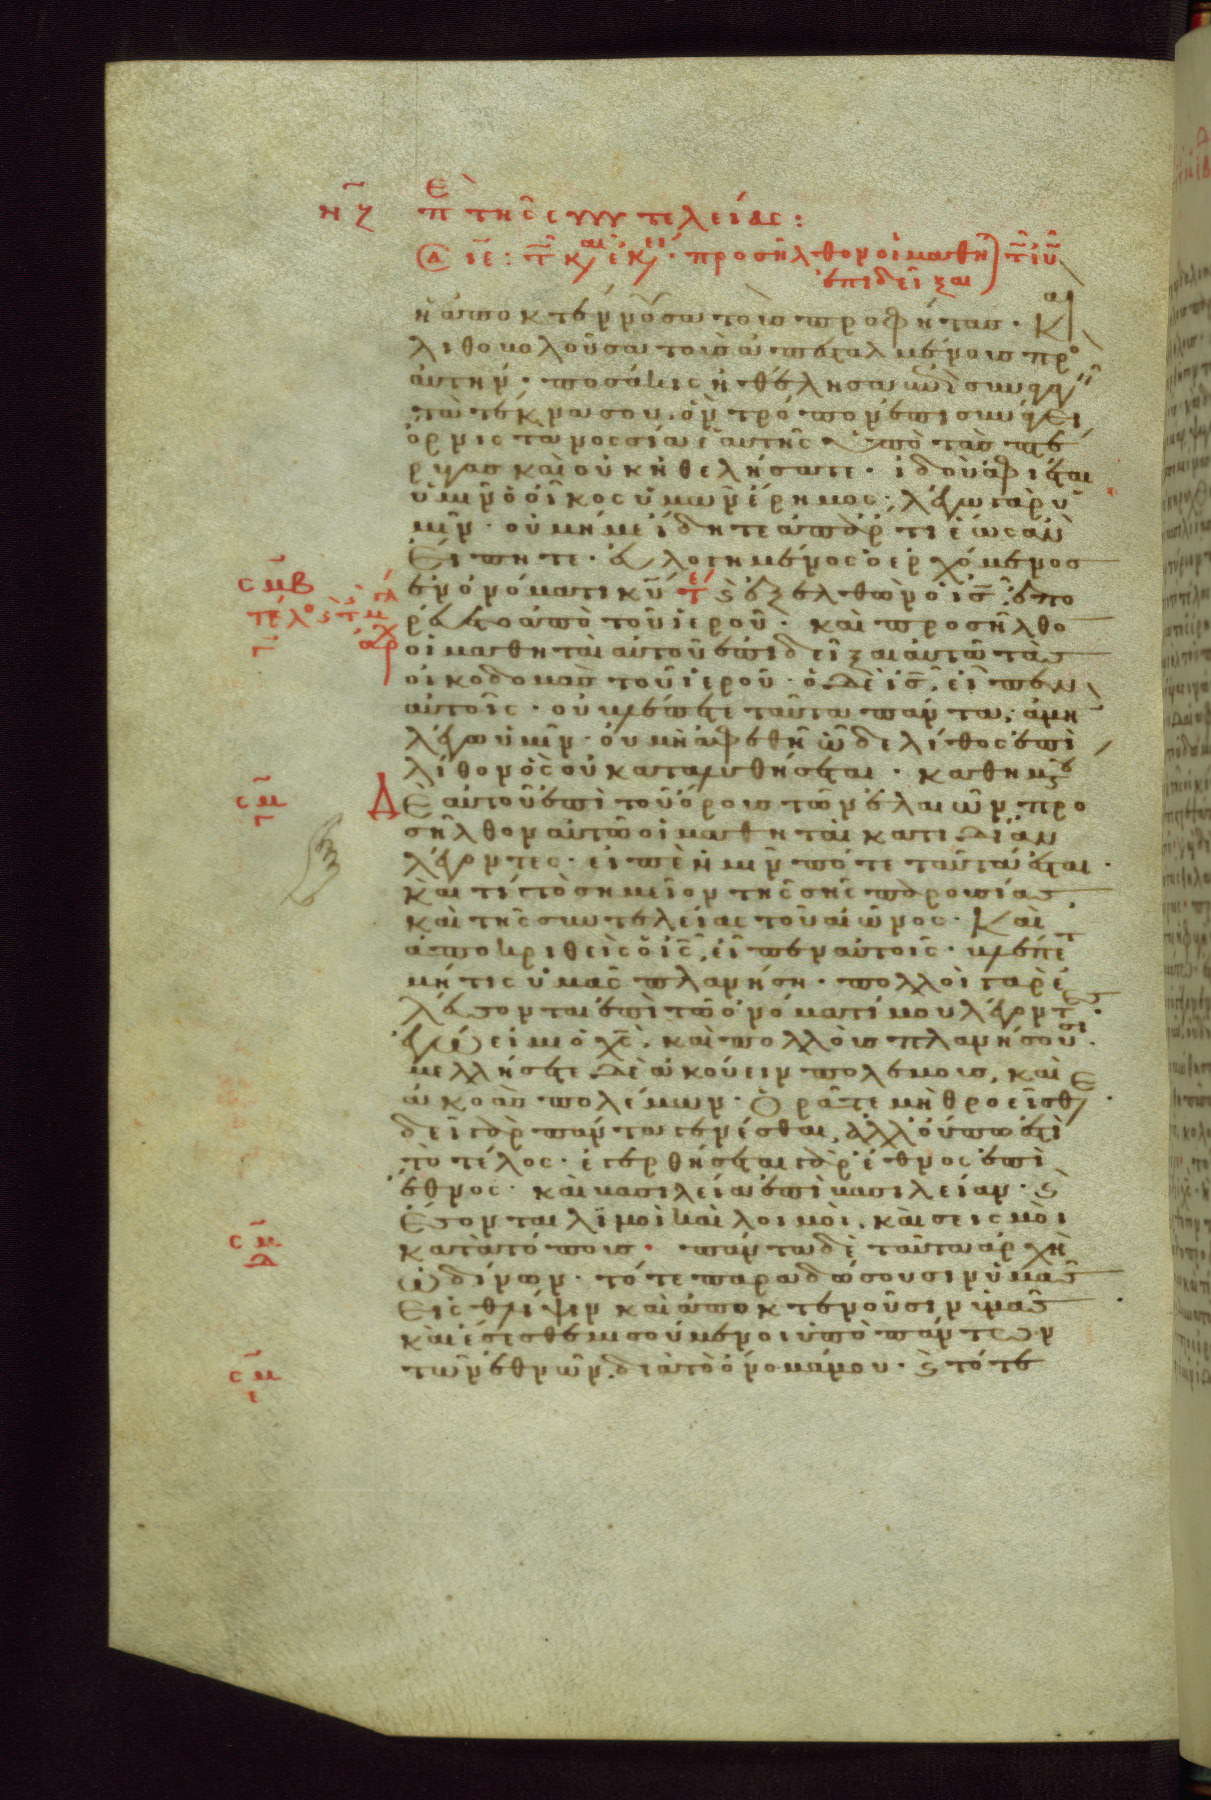 νζ Ἐπ τῆς συντελείας:
ἡ ἀποκτέννουσα τοὺς προφήτας. Καὶ
λιθοβολοῦσα τοὺς ἀπεσταλμένους πρὸ
αὐτήν. ποσάκις ἠθέλησα
τὰ τέκνα σου, ὃν τρόπον ἐπισυνάγει
ὄρνις τὰ νοσσία ἑαυτῆς ὑπὸ τὰς πτέ
ρυγας καὶ οὐκ ἠθελήσατε. ἰδοὺ ἀφίεται
ὑμῖν ὁ οἶκος ὑμῶν ἔρημος. λέγω γὰρ ὑ
μῖν. οὐ μή με ἴδητε ἀπάρτι ἕως ἂν
εἴπητε. εὐλογημένος ὁ ἐρχόμενος
σμβ ἐν ὀνόματι κυ ϛ ἐξελθὼν ὁ ις, ἐπο
ρεύετο ἀπὸ τοῦ ἱεροῦ. καὶ προσῆλθο
οἱ μαθηταὶ αὐτοῦ ἐπιδεῖξαι αὐτῶ τὰς
οἰκοδομὰς τοῦ ἱεροῦ. ὁ δὲ ις, εἶπεν
αὐτοῖς. οὐ βλέπετε ταῦτα πάντα; ἀμὴ
λέγω ὑμῖν. οὐ μὴ ἀφεθῆ ὧδε λίθος ἐπὶ
λίθον, ὃς οὐ καταλυθήσεται. καθημ
σμγ Δὲ αὐτοῦ ἐπὶ τοῦ ὄρους τῶν ἐλαιῶν, προ
σῆλθον αὐτῶ οἱ μαθηταὶ κατιδίαν
λέγοντες. εἰπὲ ἡμῖν πότε ταῦτα ἔσται.
καὶ τί τὸ σημεῖον τῆς σῆς παρουσίας
καὶ τῆς συντελείας τοῦ αἰῶνος. Καὶ
ἀποκριθεὶς ὁ ις, εἶπεν αὐτοῖς. βλέπετ
μή τις ὑμᾶς πλανήση. πολλοὶ γὰρ ἐ
λεύσονται ἐπὶ τῶ ὀνόματί μου λέγοντες.
ἐγώ εἰμι ὁ χς, καὶ πολλοὺς πλανήσουσι.
μελλήσετε δὲ ἀκούειν πολέμους, καὶ
ἀκοὰς πολέμων. Ὁρᾶτε μὴ θροεῖσθε.
δεῖ γὰρ πάντα γενέσθαι, ἀλλ' οὔπω ἐστὶ
τὸ τέλος. ἐγερθήσεται γὰρ ἔθνος ἐπὶ
ἔθνος. καὶ βασιλεία ἐπὶ βασιλείαν. ϛ
ἔσονται λιμοὶ καὶ λοιμοὶ, καὶ σεισμοὶ
σμδ κατὰ τόπους. πάντα δὲ ταῦτα ἀρχὴ
ὠδίνων. τότε παραδώσουσιν ὑμᾶς
εἰς θλίψιν καὶ ἀποκτενοῦσιν ὑμᾶς
καὶ ἔσεσθε μισούμενοι ὑπὸ πάντων
σμε τῶν ἐθνῶν, διὰ τὸ ὄνομά μου. ϛ τότε